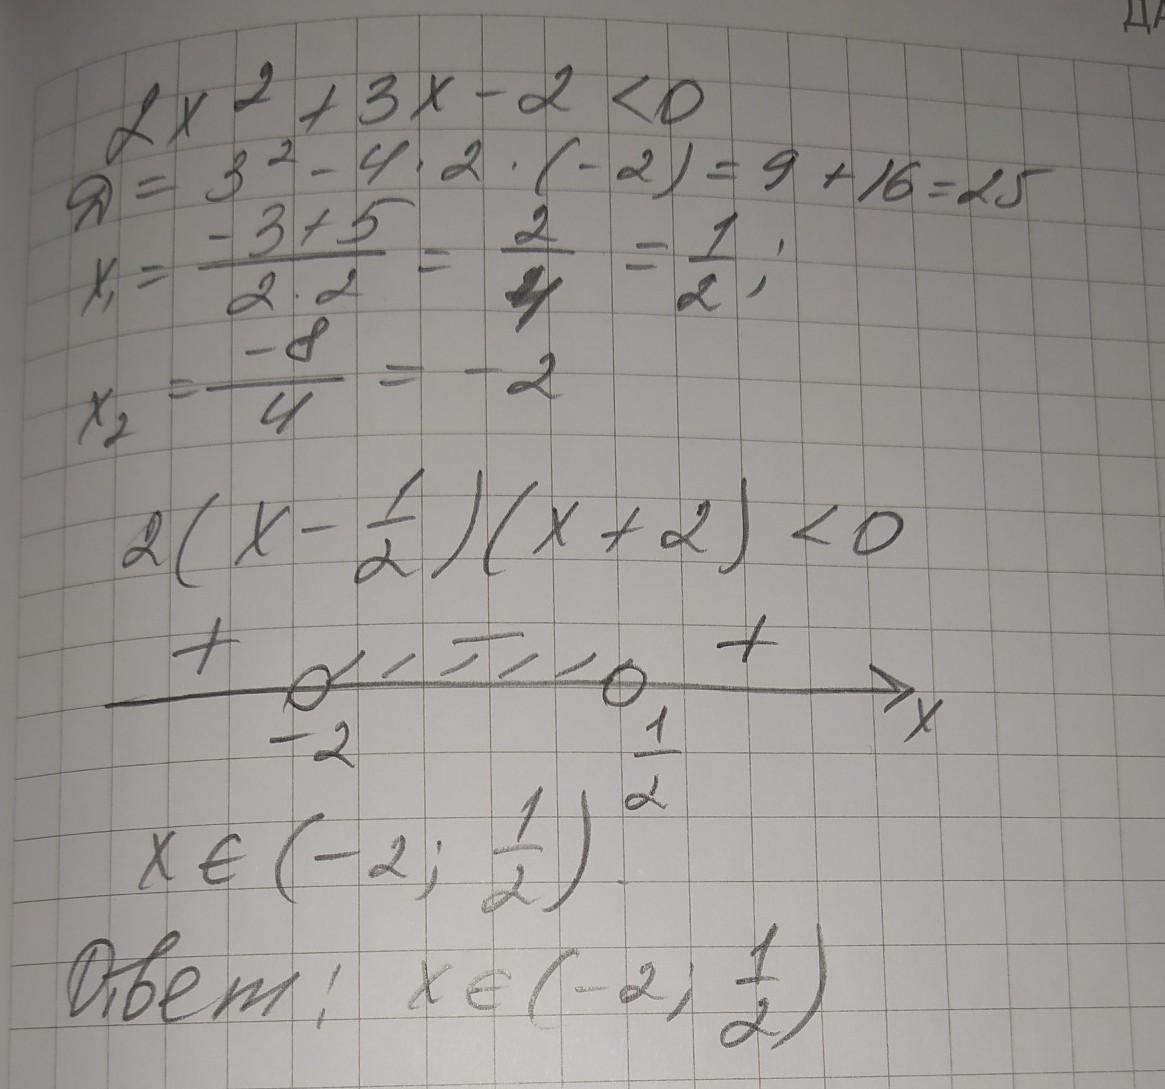 ДА
2x² + 3x - 2 < 0
D = 3² - 4 · 2 · (-2) = 9 + 16 = 25
x₁ = (-3 + 5)/(2 · 2) = 2/4 = 1/2;
x₂ = -8/4 = -2
2(x - 1/2)(x + 2) < 0
+ − +
-2 1/2 x
x ∈ (-2; 1/2).
Ответ: x ∈ (-2; 1/2)